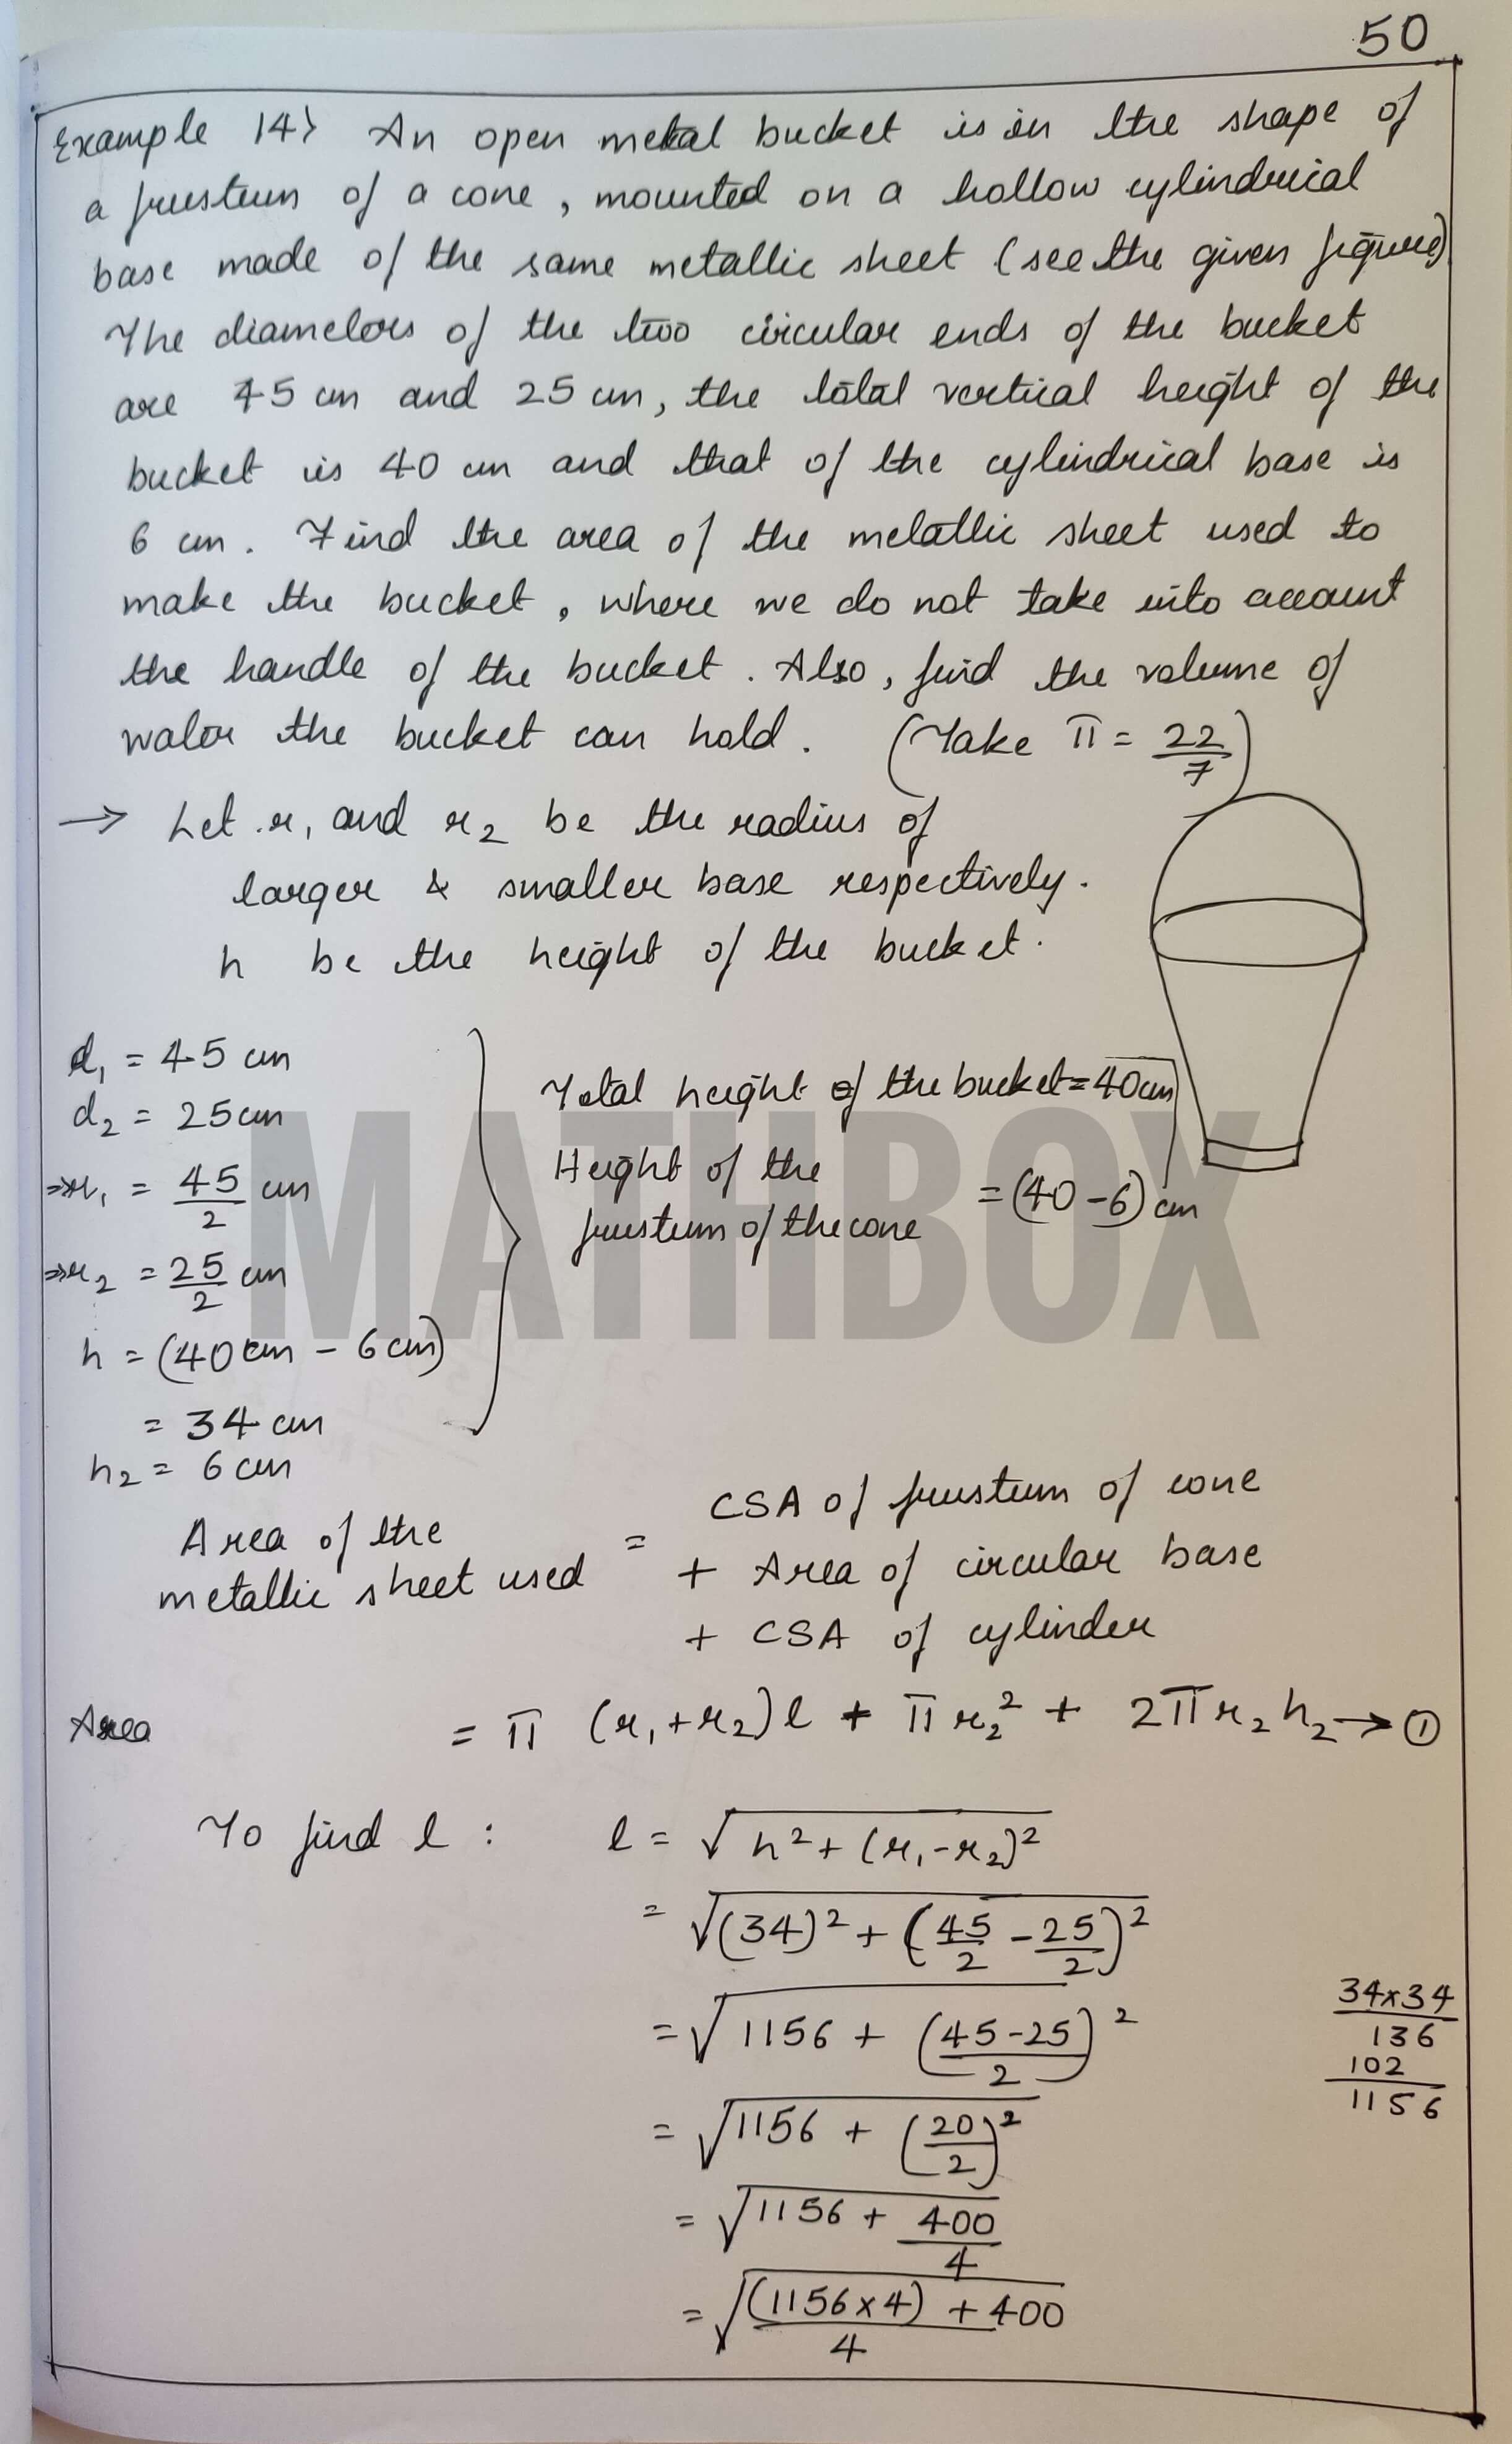 50
Example 14> An open metal bucket is in the shape of
a frustum of a cone, mounted on a hollow cylindrical
base made of the same metallic sheet (see the given figure)
The diameters of the two circular ends of the bucket
are 45 cm and 25 cm, the total vertical height of the
bucket is 40 cm and that of the cylindrical base is
6 cm. Find the area of the metallic sheet used to
make the bucket, where we do not take into account
the handle of the bucket. Also, find the volume of
water the bucket can hold. (Take π = 22/7)
→ Let r₁ and r₂ be the radius of
larger & smaller base respectively.
h be the height of the bucket.
d₁ = 45 cm
d₂ = 25 cm
⇒ r₁ = 45/2 cm
⇒ r₂ = 25/2 cm
h = (40 cm - 6 cm)
= 34 cm
h₂ = 6 cm
Total height of the bucket = 40 cm
Height of the
frustum of the cone = (40 - 6) cm
MATHBOX
Area of the
metallic sheet used = CSA of frustum of cone
+ Area of circular base
+ CSA of cylinder
Area = π (r₁ + r₂) l + π r₂² + 2π r₂ h₂ → ①
To find l : l = √(h² + (r₁ - r₂)²)
= √((34)² + (45/2 - 25/2)²)
= √(1156 + ((45-25)/2)²)
= √(1156 + (20/2)²)
= √(1156 + 400/4)
= √(((1156×4) + 400)/4)
34×34
136
102
1156